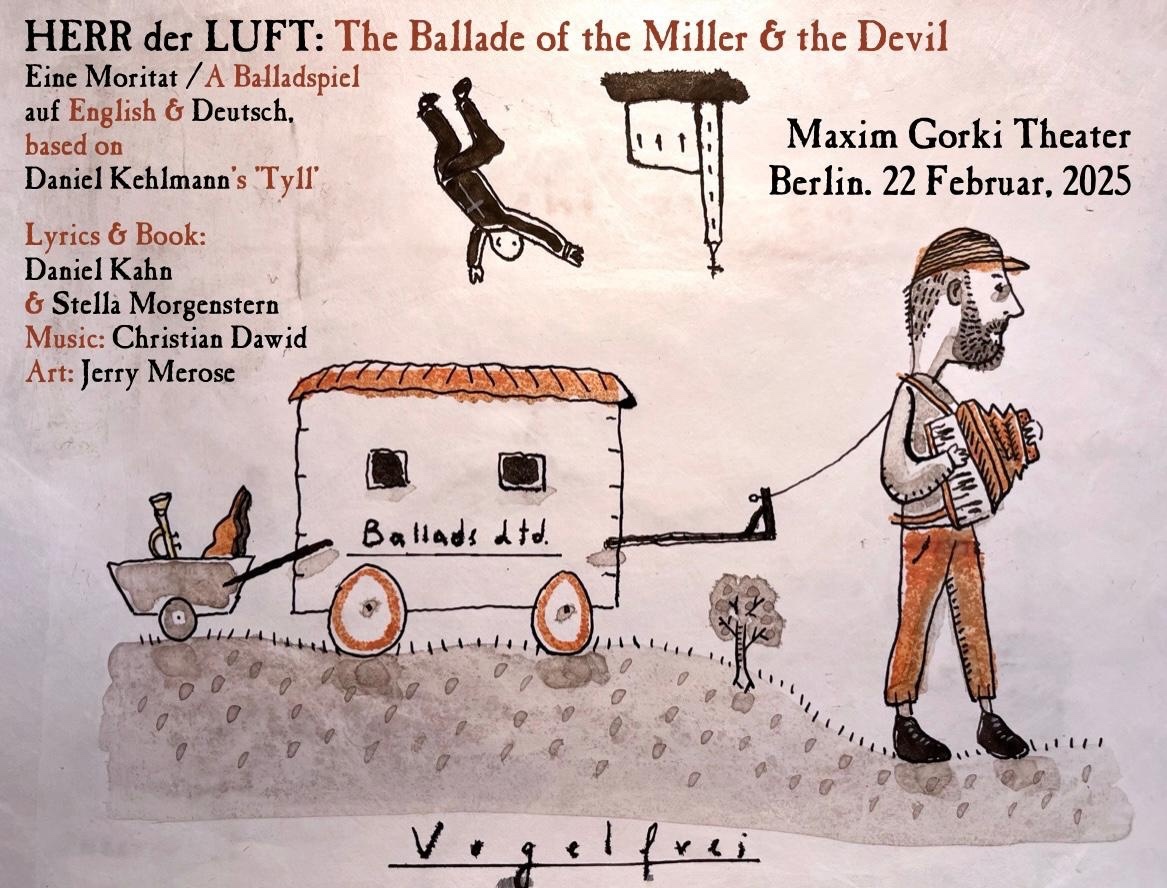 HERR der LUFT: The Ballade of the Miller & the Devil
Eine Moritat / A Balladspiel
auf English & Deutsch,
based on
Daniel Kehlmann's 'Tyll'
Lyrics & Book:
Daniel Kahn
& Stella Morgenstern
Music: Christian Dawid
Art: Jerry Merose
Maxim Gorki Theater
Berlin. 22 Februar, 2025
Ballads Ltd.
Vogelfrei